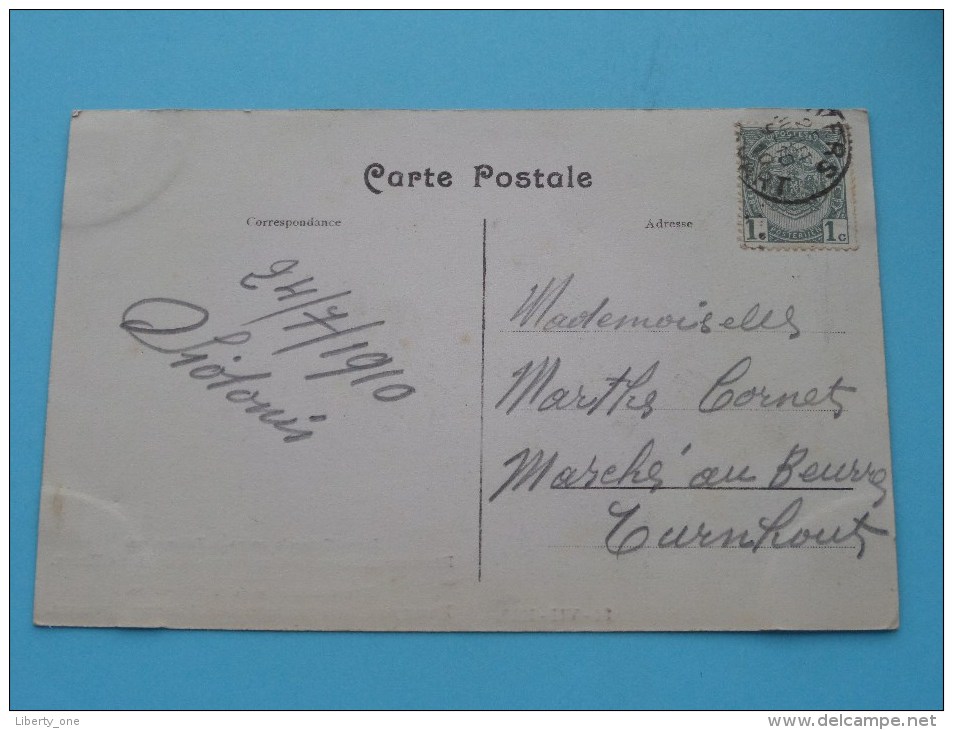 Carte Postale
Correspondance
Adresse
POSTES
1c 1c
POSTERIJEN
24/7/1910
Mademoiselle
Marthe Cornet
Marché au Beurre
Turnhout
Liberty_one
www.delcampe.net